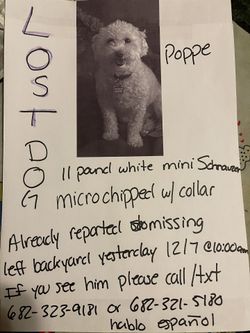 LOST DOG
Poppe
11 pound white mini Schnauzer
microchipped w/ collar
Already reported missing
left backyard yesterday 12/7 @10:00am
If you see him please call /txt
682-323-9181 or 682-321-5780
hablo español